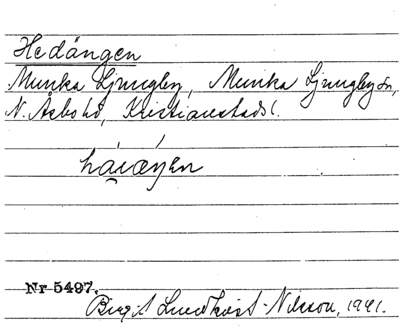 Hedängen
Munka Ljungby, Munka Ljungby sn,
N. Åsbo hd, Kristianstads l.
Nr 5497.
Birgit Lundkvist-Nilsson, 1941.